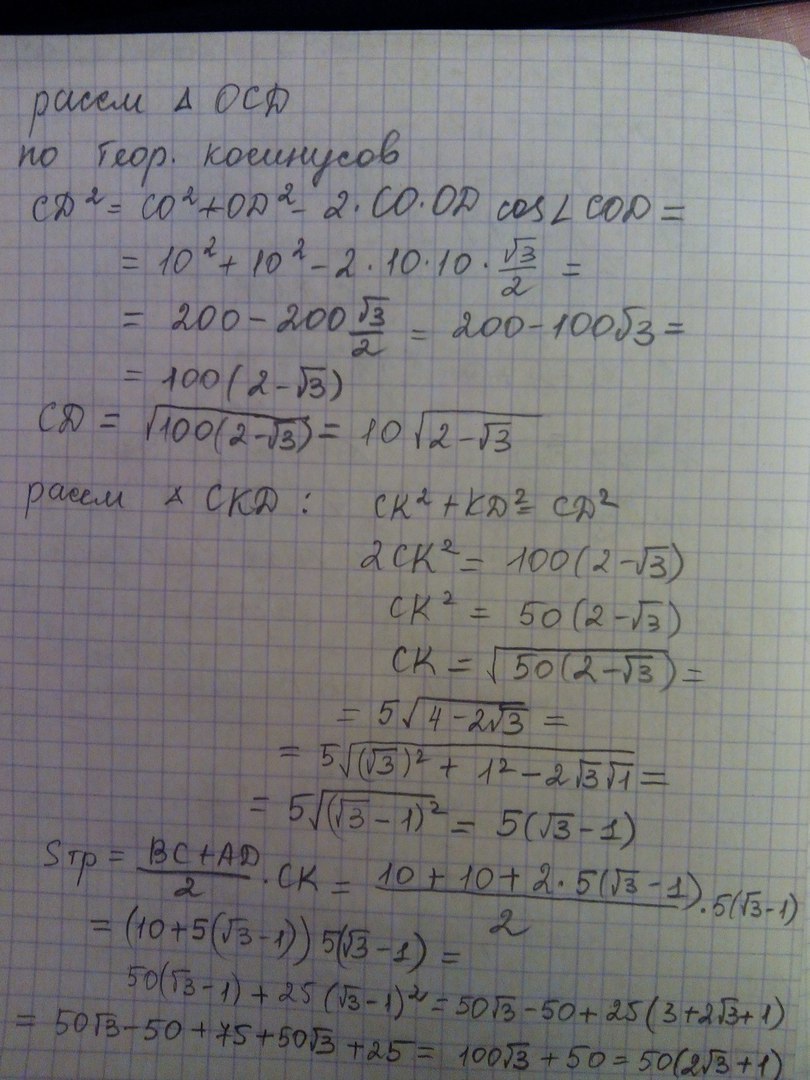 рассм Δ OCD
по теор. косинусов
CD² = CO² + OD² - 2·CO·OD cos∠COD =
= 10² + 10² - 2·10·10·√3/2 =
= 200 - 200 √3/2 = 200 - 100√3 =
= 100(2-√3)
CD = √(100(2-√3)) = 10√(2-√3)
рассм Δ CKD: CK² + KD² = CD²
2CK² = 100(2-√3)
CK² = 50(2-√3)
CK = √(50(2-√3)) =
= 5√(4-2√3) =
= 5√((√3)² + 1² - 2√3√1) =
= 5√((√3-1)²) = 5(√3-1)
Sтр = (BC+AD)/2 · CK = (10+10+2·5(√3-1))/2 · 5(√3-1)
= (10+5(√3-1))5(√3-1) =
50(√3-1) + 25(√3-1)² = 50√3-50+25(3+2√3+1)
= 50√3-50+75+50√3+25 = 100√3+50 = 50(2√3+1)